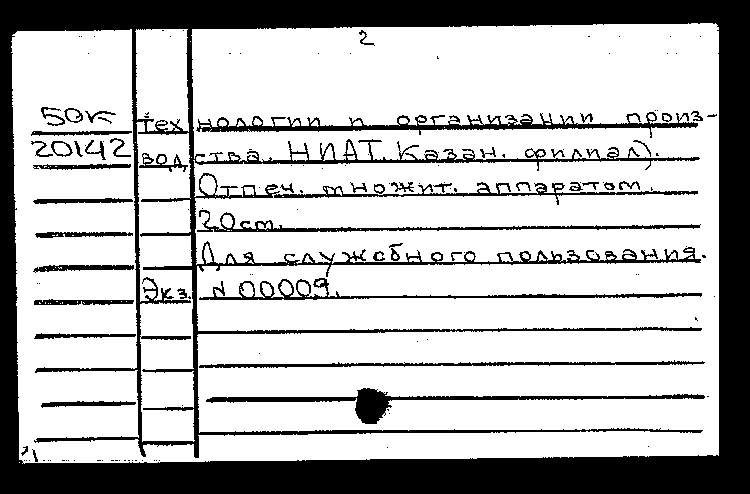 2
50к технологии и организации произ-
20142 водства. НИАТ. Казан. филиал).
Отпеч. множит. аппаратом.
20см.
Для служебного пользования.
Экз. N 00009.